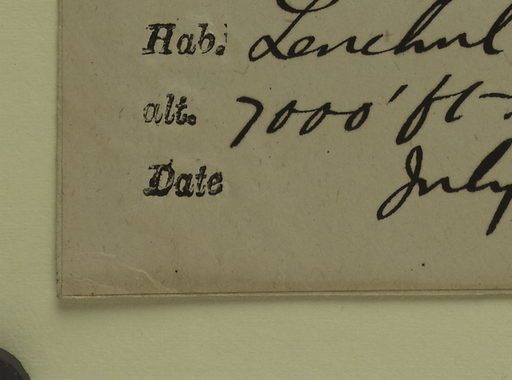 Hab. Lenchul
alt. 7000' ft
Date July